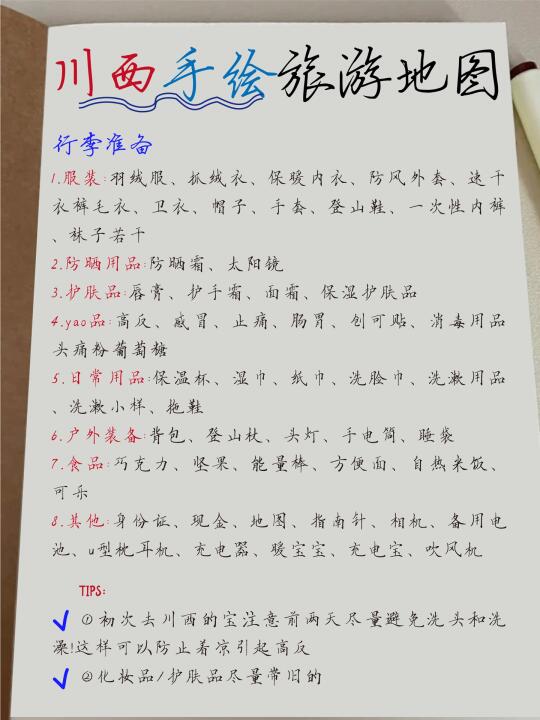 川西手绘旅游地图
行李准备
1.服装:羽绒服、抓绒衣、保暖内衣、防风外套、速干
衣裤毛衣、卫衣、帽子、手套、登山鞋、一次性内裤
、袜子若干
2.防晒用品:防晒霜、太阳镜
3.护肤品:唇膏、护手霜、面霜、保湿护肤品
4.yao品:高反、感冒、止痛、肠胃、创可贴、消毒用品
头痛粉葡萄糖
5.日常用品:保温杯、湿巾、纸巾、洗脸巾、洗漱用品
、洗漱小样、拖鞋
6.户外装备:背包、登山杖、头灯、手电筒、睡袋
7.食品:巧克力、坚果、能量棒、方便面、自热米饭、
可乐
8.其他:身份证、现金、地图、指南针、相机、备用电
池、u型枕耳机、充电器、暖宝宝、充电宝、吹风机
TIPS:
①初次去川西的宝注意前两天尽量避免洗头和洗
澡!这样可以防止着凉引起高反
②化妆品/护肤品尽量带旧的